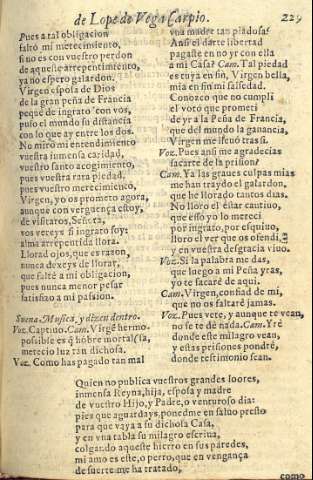 de Lope de Vega Carpio.
229
Pues a tal obligacion
faltó mi merecimiento,
si no es con vuestro perdon
de aqueste arrepentimiento,
ya no espero galardon.
Virgen esposa de Dios
de la gran peña de Francia
peque de ingrato con vos,
puso el mundo su distancia
con lo que ay entre los dos.
No miró mi entendimiento
vuestra inmensa caridad,
vuestro santo acogimiento,
pues vuestra rara piedad,
pues vuestro merecimiento,
Virgen, yo os prometo agora,
aunque con verguença estoy,
de visitaros, Señora,
vos vereys si ingrato soy:
alma arrepentida llora.
Llorad ojos, que es razon,
nunca dexeys de llorar,
que falte à mi obligacion,
pues nunca menor pesar
satisfazo a mi passion.
Suena Musica, y dizen dentro.
Voz. Captiuo. Cam. Virgẽ hermo-
possible es q̃ hõbre mortal (sa,
merecio luz tan dichosa.
Voz. Como has pagado tan mal
vna madre tan piadosa?
Assi el darte libertad
pagaste en no yr con ella
a mi Casa? Cam. Tal piedad
es tuya en sin, Virgen bella,
mia en sin mi falsedad.
Conozco que no cumpli
el voto que prometi
de yr a la Peña de Francia,
que del mundo la ganancia,
Virgen me lleuò tras si.
Voz. Pues ansi me agradecias
sacarte de la prision?
Cam. Ya las graues culpas mias
me han traydo el galardon,
que he llorado tantos dias.
No lloro el estar cautiuo,
que esso yo lo mereci
por ingrato, por esquiuo,
lloro el ver que os ofendi,
y en vuestra desgracia viuo.
Voz. Si la palabra me das,
que luego a mi Peña yras,
yo te sacarè de aqui.
Cam. Virgen, confiad de mi,
que no os faltarè jamas.
Voz. Pues vete, y aunque te vean,
no se te dè nada. Cam. Yrè
donde este milagro vean,
y estas prisiones pondrè,
donde testimonio sean.
Quien no publica vuestros grandes loores,
inmensa Reyna, hija, esposa y madre
de vuestro Hijo, y Padre, o venturoso dia:
pies que aguardays, ponedme en saluo presto
para que vaya a su dichosa Casa,
y en vna tabla su milagro escriua,
colgando aqueste hierro en sus paredes,
mi amo es este, o perro, que en vengança
de suerte me ha tratado,
como